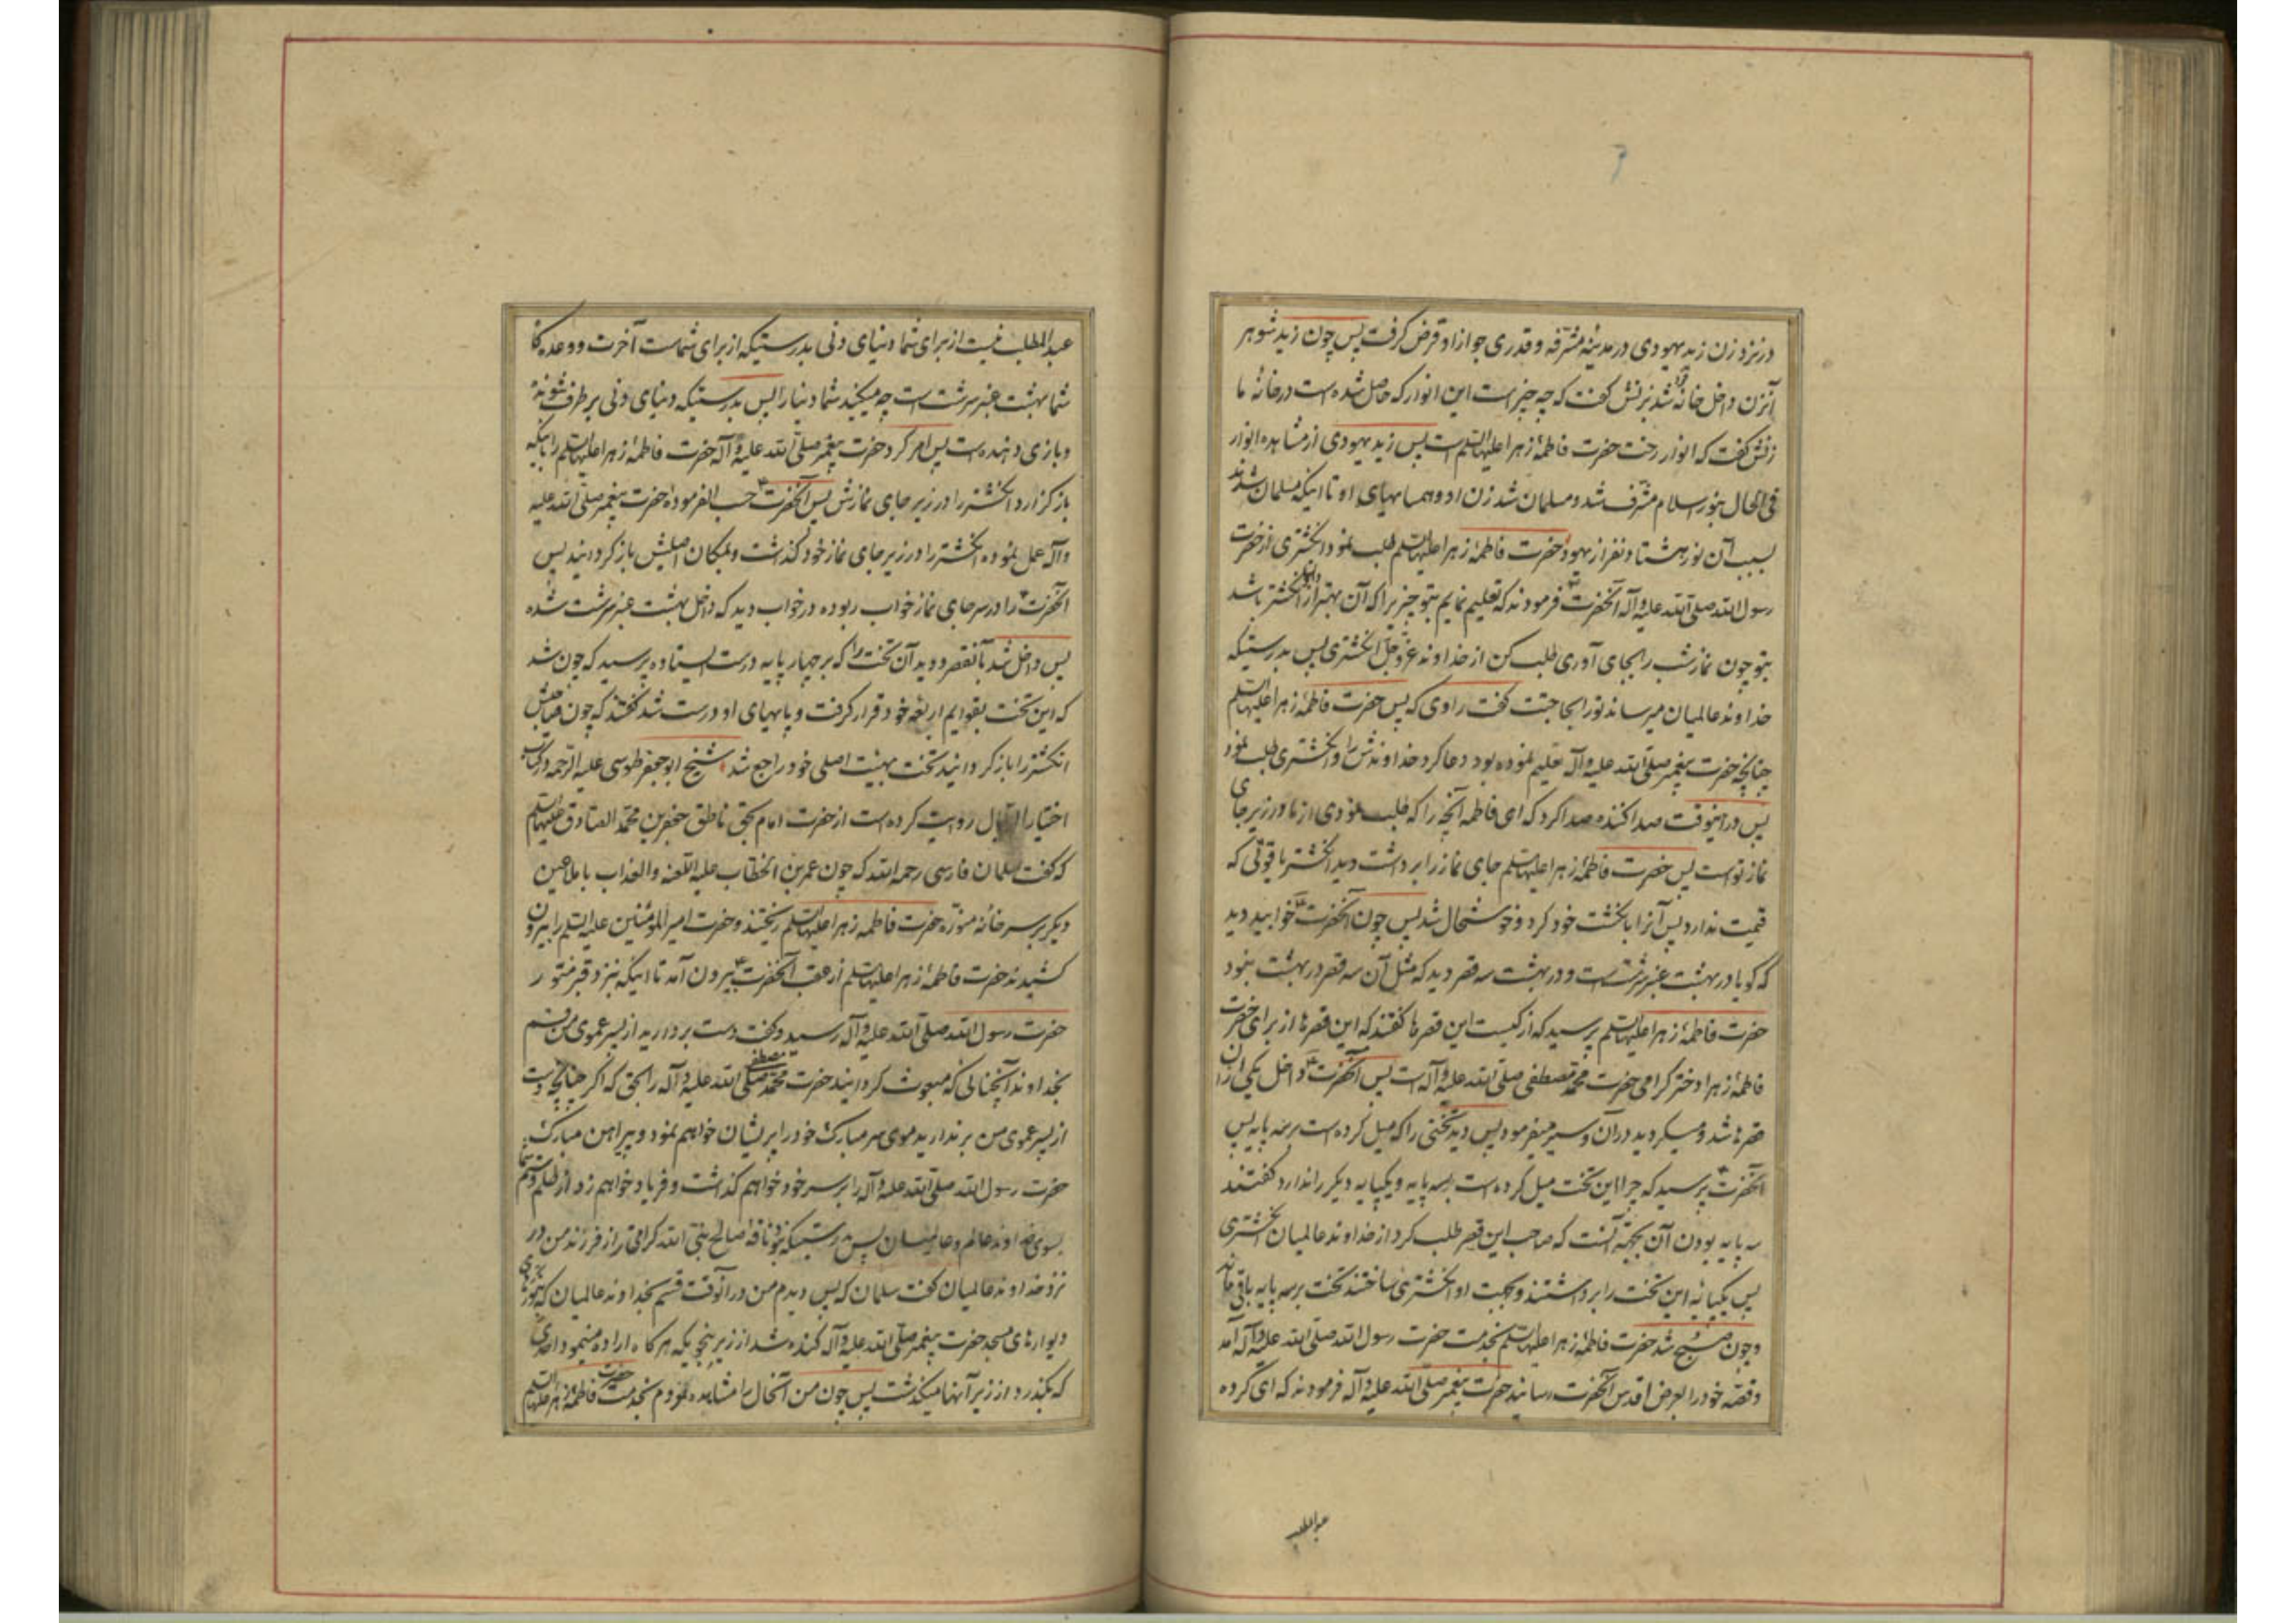 در نزد زن زید یهودی در مدینهٔ مشرفه و قدری جو از او قرض گرفت پس چون زید شوهر
آنزن داخل خانه شد بزنش گفت که چه چیز است این انوار که حاصل شده است در خانهٔ ما
زنش گفت که انوار رخت حضرت فاطمهٔ زهرا علیها السلم است پس زید یهودی از مشاهده انوار
فی الحال بنور اسلام مشرف شد و مسلمان شد زن او و همسایهای او تا اینکه مسلمان شدند
بسبب آن نور هشتاد نفر از یهود حضرت فاطمهٔ زهرا علیها السلم طلب نمود انگشتری از حضرت
رسول الله صلی الله علیه و آله آنحضرت فرمودند که تعلیم نمایم بتو چیزیرا که آن بهتر از انگشتر باشد
بتو چون نماز شب را بجای آوری طلب کن از خداوند عز و جل انگشتری پس بدرستیکه
خداوند عالمیان میرساند تو را بحاجتت گفت راوی که پس حضرت فاطمهٔ زهرا علیها السلم
چنانچه حضرت پیغمبر صلی الله علیه و آله تعلیم نموده بود دعا کرد خداوندش را و انگشتری طلب نمود
پس در اینوقت صدا کننده صدا کرد که ای فاطمه آنچه را که طلب نمودی از ما در زیر جای
نماز تو است پس حضرت فاطمهٔ زهرا علیها السلم جای نماز را برداشت دید انگشتر یاقوتی که
قیمت ندارد پس آنرا بانگشت خود کرد و خوشحال شد پس چون آنحضرت خوابید دید
که گویا در بهشت عنبر سرشت است و در بهشت سه قصر دید که مثل آن سه قصر در بهشت نبود
حضرت فاطمهٔ زهرا علیها السلم پرسید که از کیست این قصرها گفتند که این قصرها از برای حضرت
فاطمهٔ زهرا دختر گرامی حضرت محمد مصطفی صلی الله علیه و آله است پس آنحضرت داخل یکی از آن
قصرها شد و میگردید در آن و سیر میفرمود پس دید تختی را که میل کرده است بر سه پایه پس
آنحضرت پرسید که چرا این تخت میل کرده است بسه پایه و یکپایه دیگر را ندارد گفتند
سه پایه بودن آن بجهة آنست که صاحب این قصر طلب کرد از خداوند عالمیان انگشتری
پس یکپایهٔ این تخت را برداشتند و بجهت او انگشتری ساختند تخت بر سه پایه باقی ماند
و چون صبح شد حضرت فاطمهٔ زهرا علیها السلم بخدمت حضرت رسول الله صلی الله علیه و آله آمد
و قصهٔ خود را بعرض اقدس آنحضرت رسانید حضرت پیغمبر صلی الله علیه و آله فرمودند که ای گروه
عبد المطلب
عبد المطلب نیست از برای شما دنیای دنی بدرستیکه از برای شماست آخرت و وعده گاه
شما بهشت عنبر سرشت است چه میکنید شما دنیا را پس بدرستیکه دنیای دنی بر طرف شونده
و بازی دهنده است پس امر کرد حضرت پیغمبر صلی الله علیه و آله حضرت فاطمهٔ زهرا علیها السلم را باینکه
باز گزارد انگشتر را در زیر جای نمازش پس آنحضرت حسب الفرمودهٔ حضرت پیغمبر صلی الله علیه
و آله عمل نموده انگشتر را در زیر جای نماز خود گذشت و بمکان اصلیش باز گردانید پس
آنحضرت را در سر جای نماز خواب ربوده در خواب دید که داخل بهشت عنبر سرشت شده
پس داخل شد بآنقصر و دید آن تخت را که بر چهار پایه درست ایستاده پرسید که چون شد
که این تخت بقوایم اربعهٔ خود قرار گرفت و پایهای او درست شد گفتند که چون صاحبش
انگشتر را باز گردانید تخت بهیئت اصلی خود راجع شد شیخ ابو جعفر طوسی علیه الرحمه در کتاب
اختیار الرجال روایت کرده است از حضرت امام بحق ناطق جعفر بن محمد الصادق علیهما السلم
که گفت سلمان فارسی رحمه الله که چون عمر بن الخطاب علیه اللعنه و العذاب با ملاعین
دیگر بر سر خانهٔ منوره حضرت فاطمهٔ زهرا علیها السلم ریختند و حضرت امیر المؤمنین علیه السلم را بیرون
کشیدند حضرت فاطمهٔ زهرا علیها السلم از عقب آنحضرت بیرون آمد تا اینکه بنزد قبر منور
حضرت رسول الله صلی الله علیه و آله رسید و گفت دست بردارید از پسر عموی من قسم
بخداوند آنچنانی که مبعوث گردانید حضرت محمد مصطفی صلی الله علیه و آله را بحق که اگر چنانچه دست
از پسر عموی من برندارید موی سر مبارک خود را پریشان خواهم نمود و پیراهن مبارک
حضرت رسول الله صلی الله علیه و آله را بر سر خود خواهم گذاشت و فریاد خواهم زد از ظلم و ستم شما
بسوی خداوند عالم و عالمیان پس بدرستیکه نبود ناقه صالح نبی الله گرامی‌تر از فرزند من در
نزد خداوند عالمیان گفت سلمان که پس دیدم من در آنوقت قسم بخداوند عالمیان که
دیوارهای مسجد حضرت پیغمبر صلی الله علیه و آله کنده شد از زیر بنحویکه هر گاه اراده مینمود احدی
که بگذرد از زیر آنها میگذشت پس چون من آنحال را مشاهده نمودم بخدمت حضرت فاطمهٔ زهرا علیها السلم